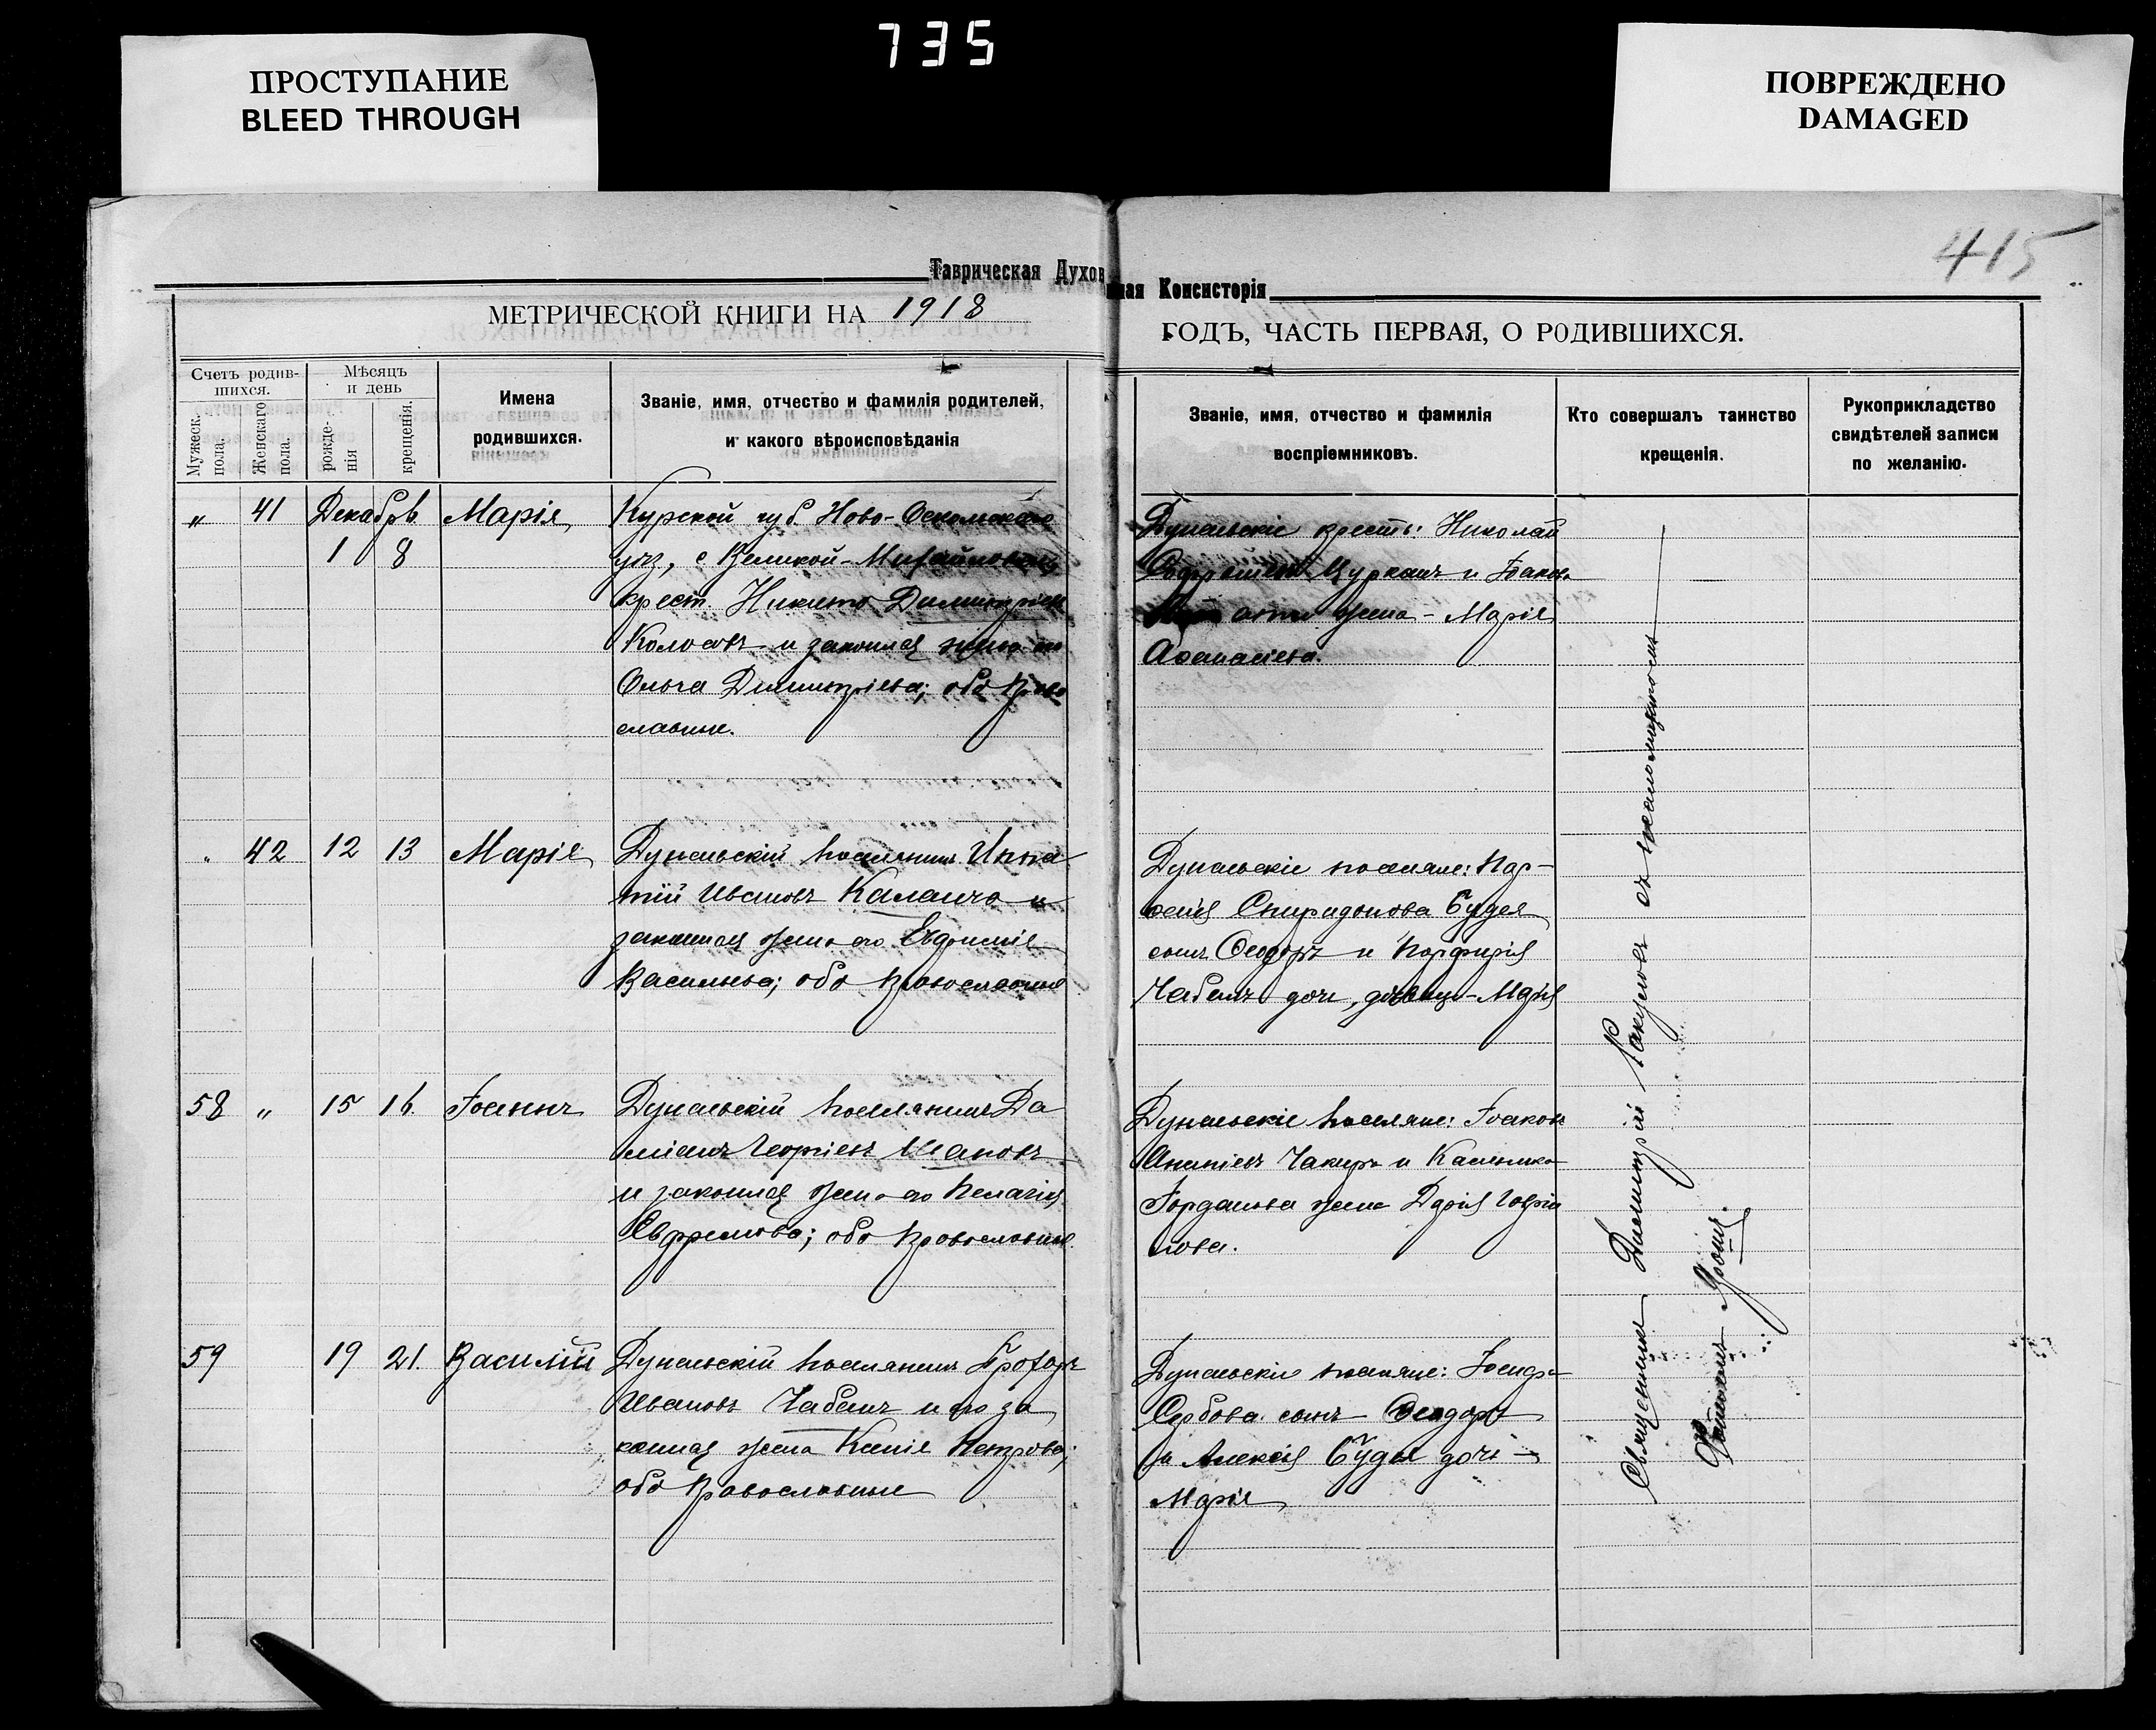 735
ПРОСТУПАНИЕ
BLEED THROUGH
ПОВРЕЖДЕНО
DAMAGED
415
Таврическая Духовная Консисторія
МЕТРИЧЕСКОЙ КНИГИ НА 1918
ГОДЪ, ЧАСТЬ ПЕРВАЯ, О РОДИВШИХСЯ.
Счетъ родив-
шихся.
Мужеск. пола.
Женскаго пола.
Мѣсяцъ
и день
рожде-
нія
крещенія.
Имена
родившихся.
Званіе, имя, отчество и фамилія родителей,
и какого вѣроисповѣданія
Званіе, имя, отчество и фамилія
воспріемниковъ.
Кто совершалъ таинство
крещенія.
Рукоприкладство
свидѣтелей записи
по желанію.
„ 41 Декабрь
1 8
Марія
Курской губ. Ново-Оскольскаго
уѣз, с Великой-Михайловки
крест. Никита Димитріевъ
Колосовъ и законная жена его
Ольга Димитріева; оба право
славные.
Дунаевскіе крест: Николай
Цурканъ и Іакова
жена - Марія
Афанасіева.
„ 42 12 13 Марія
Дунаевскій поселянинъ Игна
тій Ивановъ Каланча и
законная жена его Евдокія
Васильева; оба православные
Дунаевскіе поселяне: Пар-
фенія Спиридонова Будея
сынъ Феодоръ и Порфирія
Чабанъ дочь, дѣвица - Марія
58 „ 15 16. Іоаннъ
Дунаевскій поселянинъ Да
міанъ Георгіевъ
и законная жена его Пелагія
Ефремова; оба православные.
Дунаевскіе поселяне: Іаковъ
Ананіевъ Чакиръ и
Іорданова жена Дарія Гавріи
лова.
59 19 21. Василій
Дунаевскій поселянинъ Прохоръ
Ивановъ Чабанъ и его за
конная жена Ксенія Петрова;
оба православные
Дунаевскіе поселяне: Іосифа
Сербова сынъ - Феодоръ
и Алексія Будея дочь -
Марія
Священникъ Димитрій съ псаломщикомъ